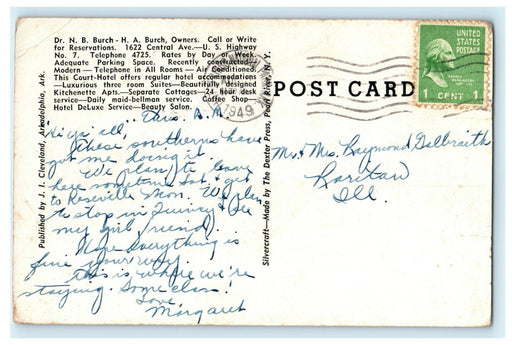 Dr. N. B. Burch - H. A. Burch, Owners. Call or Write
for Reservations. 1622 Central Ave.—U. S. Highway
No. 7. Telephone 4725. Rates by Day or Week
Adequate Parking Space. Recently constructed—
Modern — Telephone in All Rooms — Air Conditioned
This Court-Hotel offers regular hotel accommodations
—Luxurious three room Suites—Beautifully designed
Kitchenette Apts.—Separate Cottages—24 hour desk
service—Daily maid-bellman service. Coffee Shop—
Hotel DeLuxe Service—Beauty Salon.
Published by J. I. Cleveland, Arkadelphia, Ark.
Silvercraft—Made by The Dexter Press, Pearl River, N. Y.
POST CARD
1949
UNITED
STATES
POSTAGE
1 CENT 1
Hi ya' all,
These southerns have
got me doing it.
We plan to leave
here sometime Sat & get
to Roseville Mon. We plan
to stop in Quincy & see
my girl friend.
Hope everything is
fine your way.
This is where we're
staying. Some class!
Love,
Margaret
Mr. & Mrs. Raymond Galbraith
Raritan
Ill.